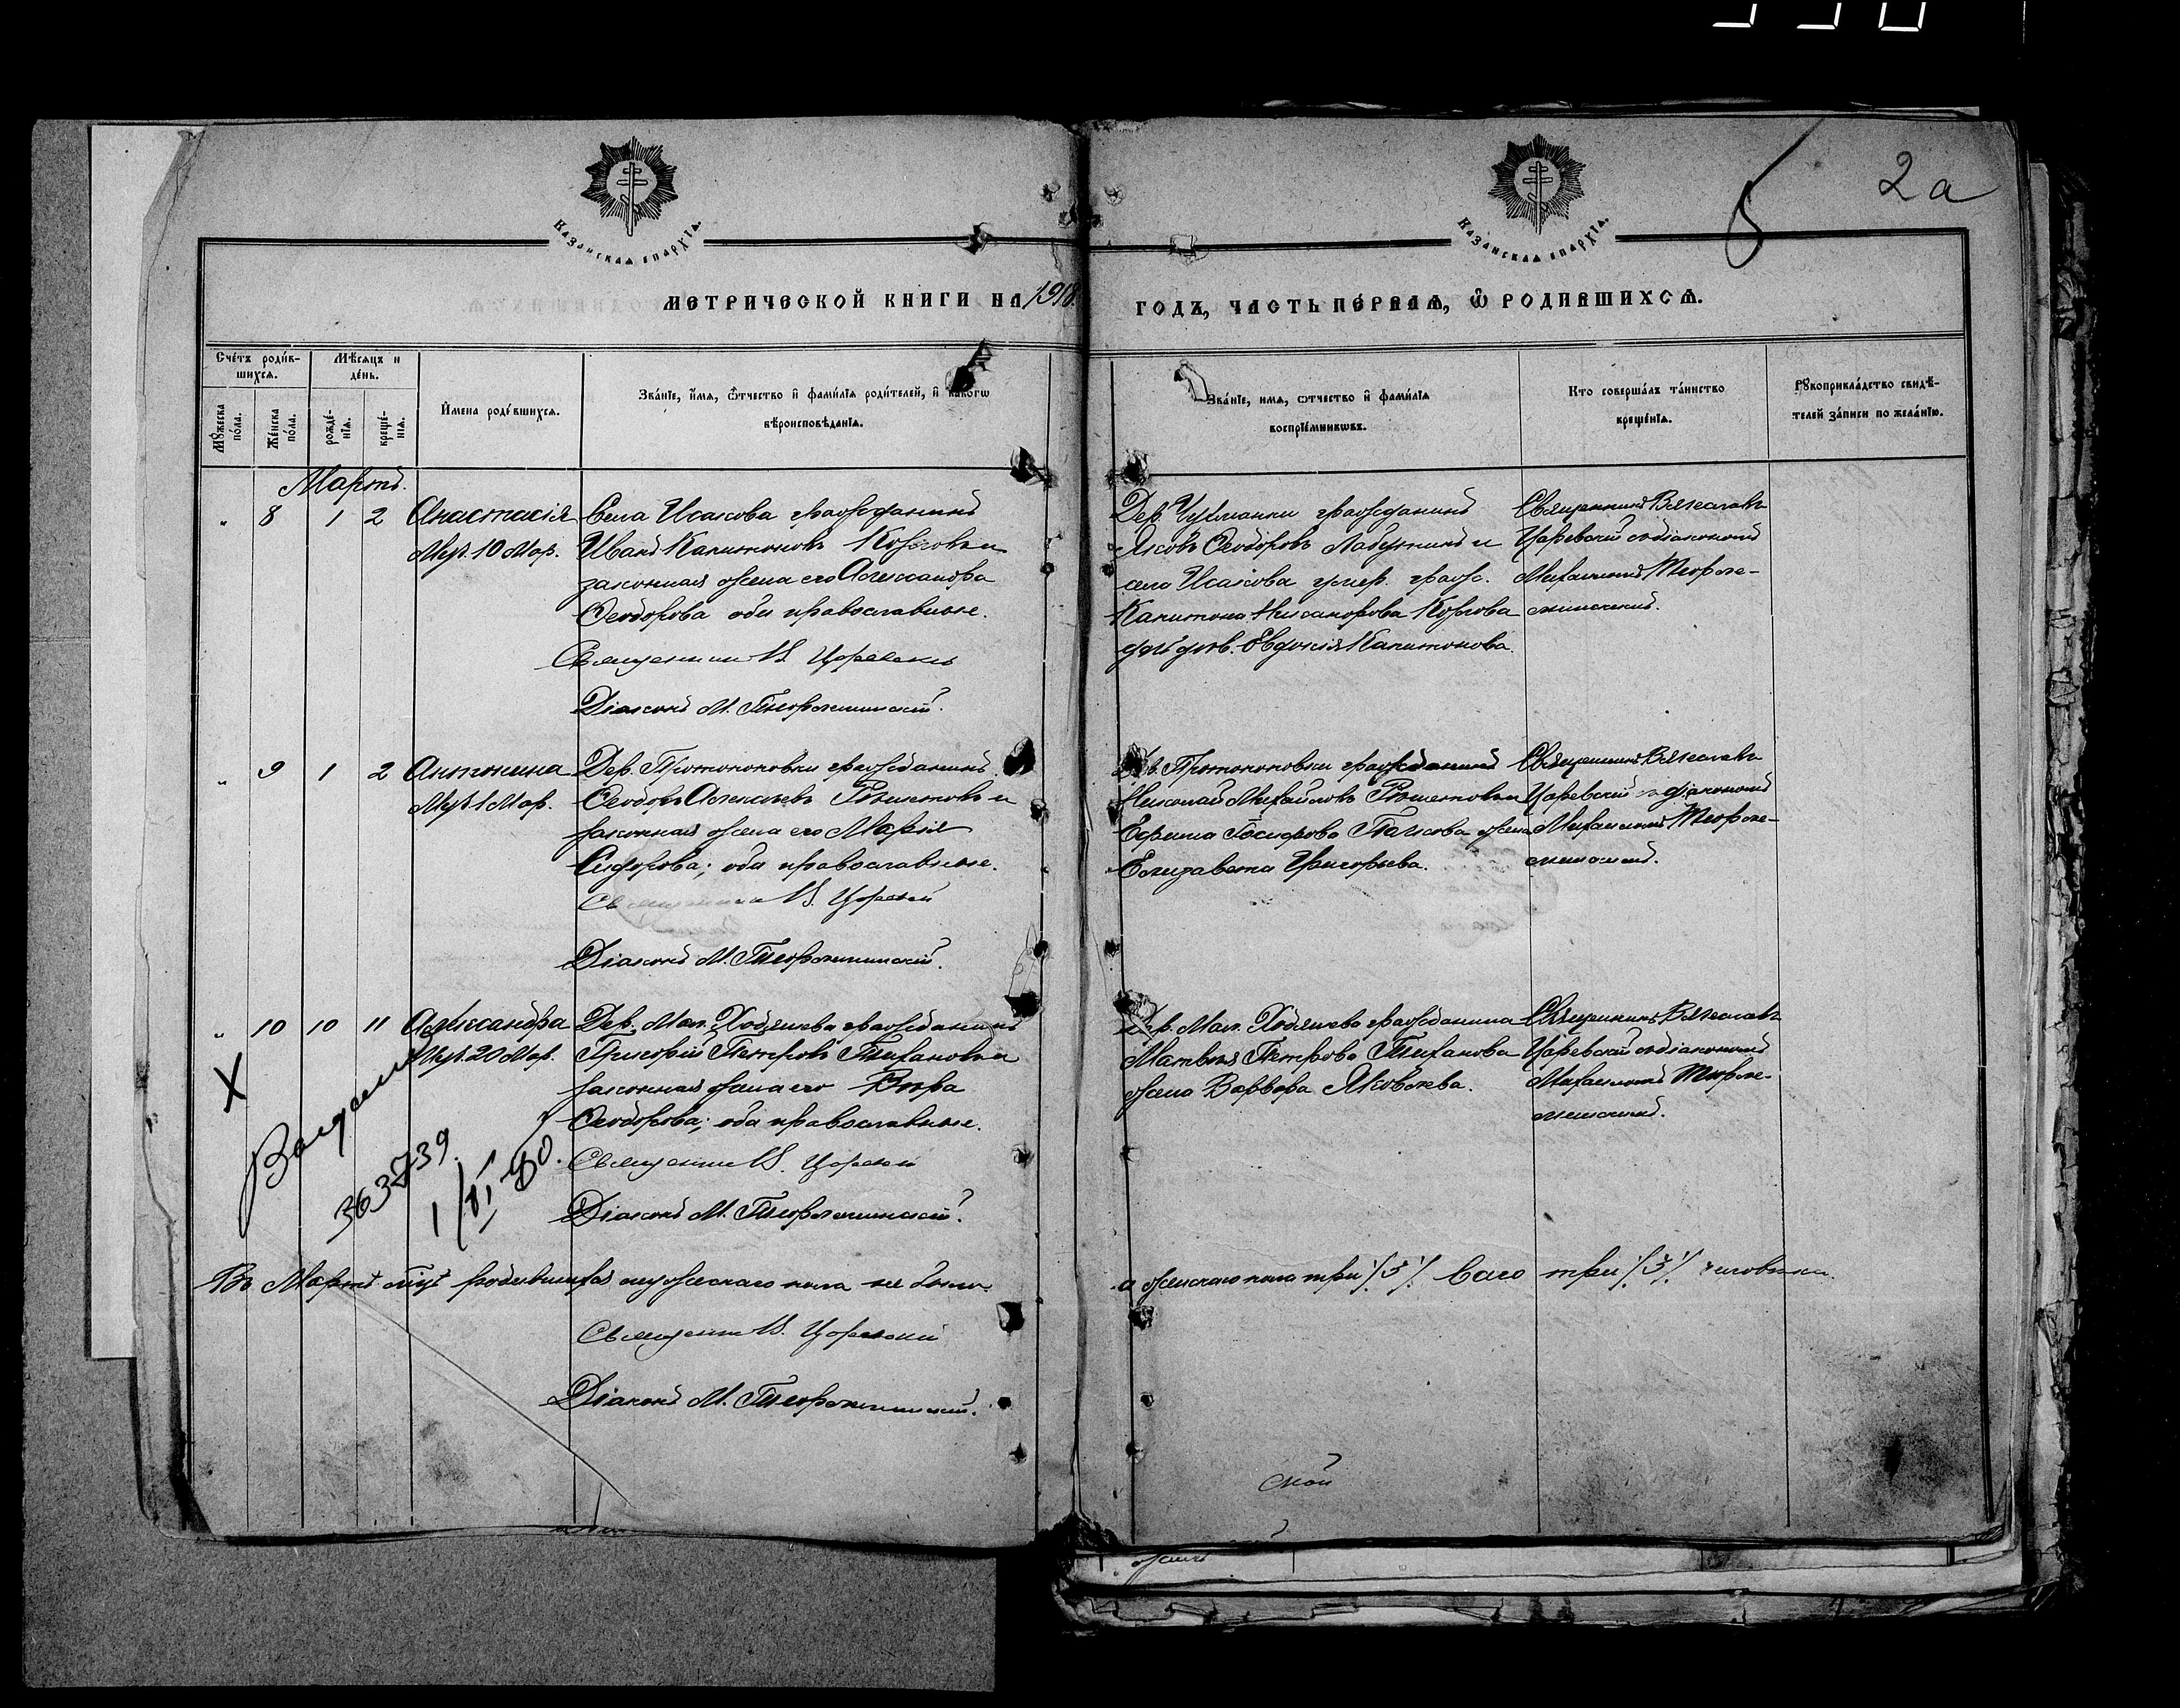 2а
Казанская епархїа.
Казанская епархїа.
МЕТРИЧЕСКОЙ КНИГИ НА 1918
ГОДЪ, ЧАСТЬ ПЕРВАЯ, Ѿ РОДИВШИХСЯ.
Сче́тъ роди́в-
шихся.
Мѣ́сяцъ и
де́нь.
Мꙋжеска
по́ла.
Же́нска
по́ла.
рожде́-
нїя.
креще́-
нїя.
И҆мена роди́вшихся.
Зва́нїе, и҆́мя, ѻ҆́тчество и҆ фами́лїя роди́телей, и҆ какогѡ
вѣроисповѣ́данїя.
Зва́нїе, имя, ѻтчество и҆ фами́лїя
воспрїе́мникѡвъ.
Кто соверша́лъ та́инство
креще́нїя.
Рꙋкоприкла́дство свидѣ́-
телей за́писи по жела́нїю.
Мартъ.
" 8 1 2 Анастасія
Мур. 10 Мар.
Села Исакова гражданинъ
Иванъ Капитоновъ и
законная жена его Александра
Ѳеодорова оба православные.
Священникъ В. Царевскій
Діаконъ М.
Дер. гражданинъ
Яковъ Ѳеодоровъ и
села Исакова умер. гражд.
Капитона Никанорова
дочь дѣв. Евдокія Капитонова.
Священникъ Вячеславъ
Царевскій съ діакономъ
Михаиломъ
" 9 1 2 Антонина
Мур. 1 Мар.
Дер. Протопоповки гражданинъ
Ѳеодоръ Алексѣевъ и
законная жена его Марія
Сидорова; оба православные.
Священникъ В. Царевскій
Діаконъ М.
Дер. Протопоповки гражданинъ
Николай Михайловъ и
Ефима жена
Елизавета Григорьева.
Священникъ Вячеславъ
Царевскій съ діакономъ
Михаиломъ
" 10 10 11 Александра
Мур. 20 Мар.
Дер. Мал. Ходяшева гражданинъ
Григорій Петровъ Тихановъ и
законная жена его Вѣра
Ѳеодорова; оба православные.
Священникъ В. Царевскій
Діаконъ М.
Дер. Мал. Ходяшева гражданина
Матвѣя Петрова Тиханова
жена Варвара Яковлева.
Священникъ Вячеславъ
Царевскій съ діакономъ
Михаиломъ
X
363739.
Въ Мартѣ мцѣ родившихся мужескаго пола не было
а женскаго пола три /3/. Всего три /3/ человѣка.
Священникъ В. Царевскій
Діаконъ М.